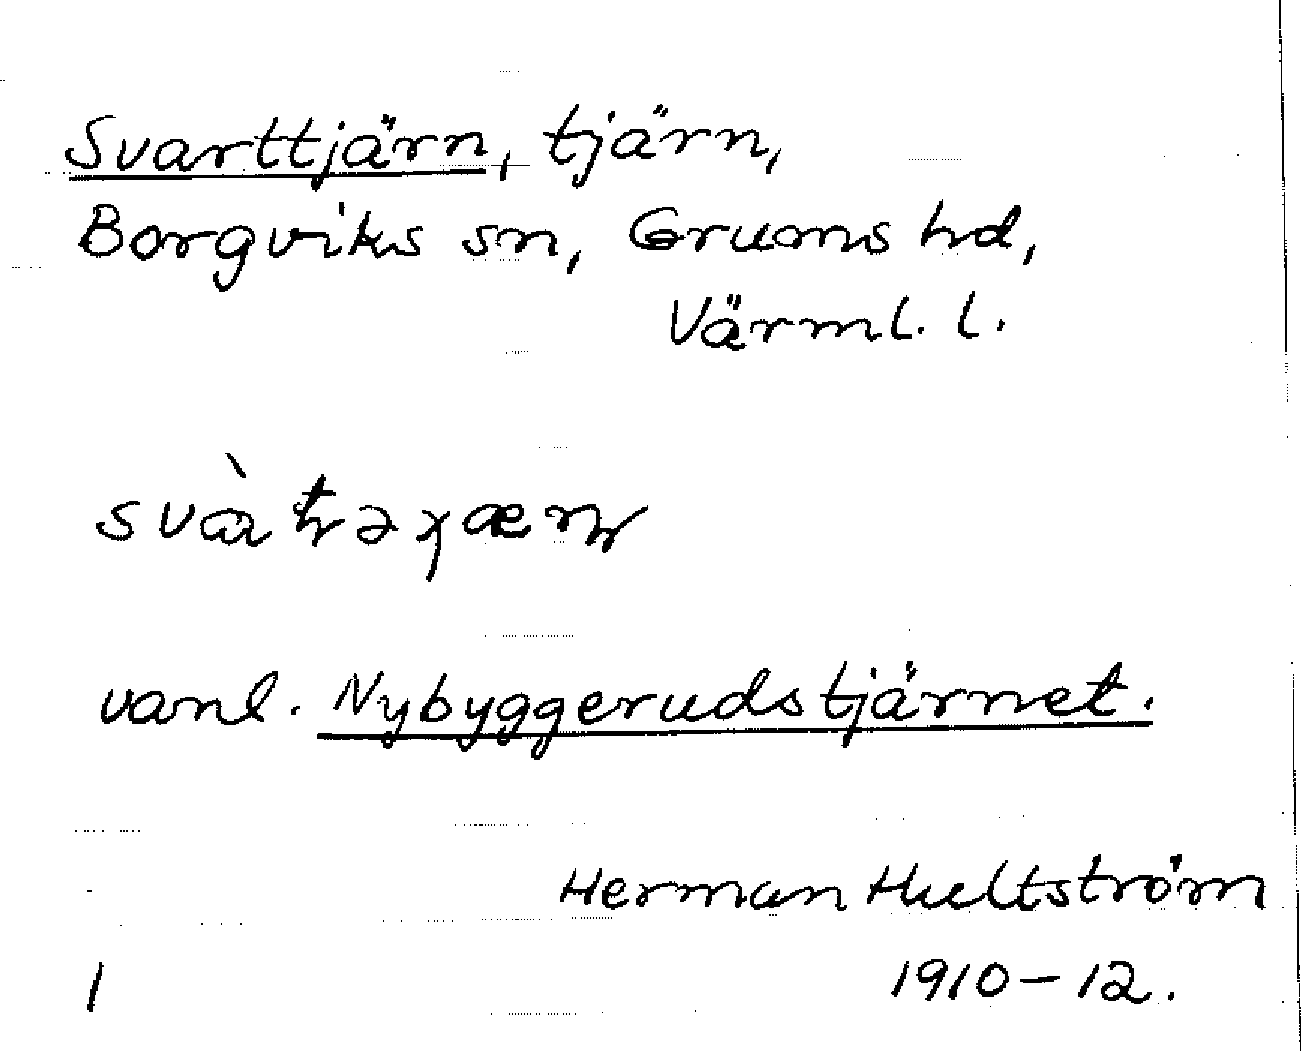 Svarttjärn, tjärn,
Borgviks sn, Grums hd,
Värml. l.
vanl. Nybyggerudstjärnet.
Herman Hultström
1 1910-12.